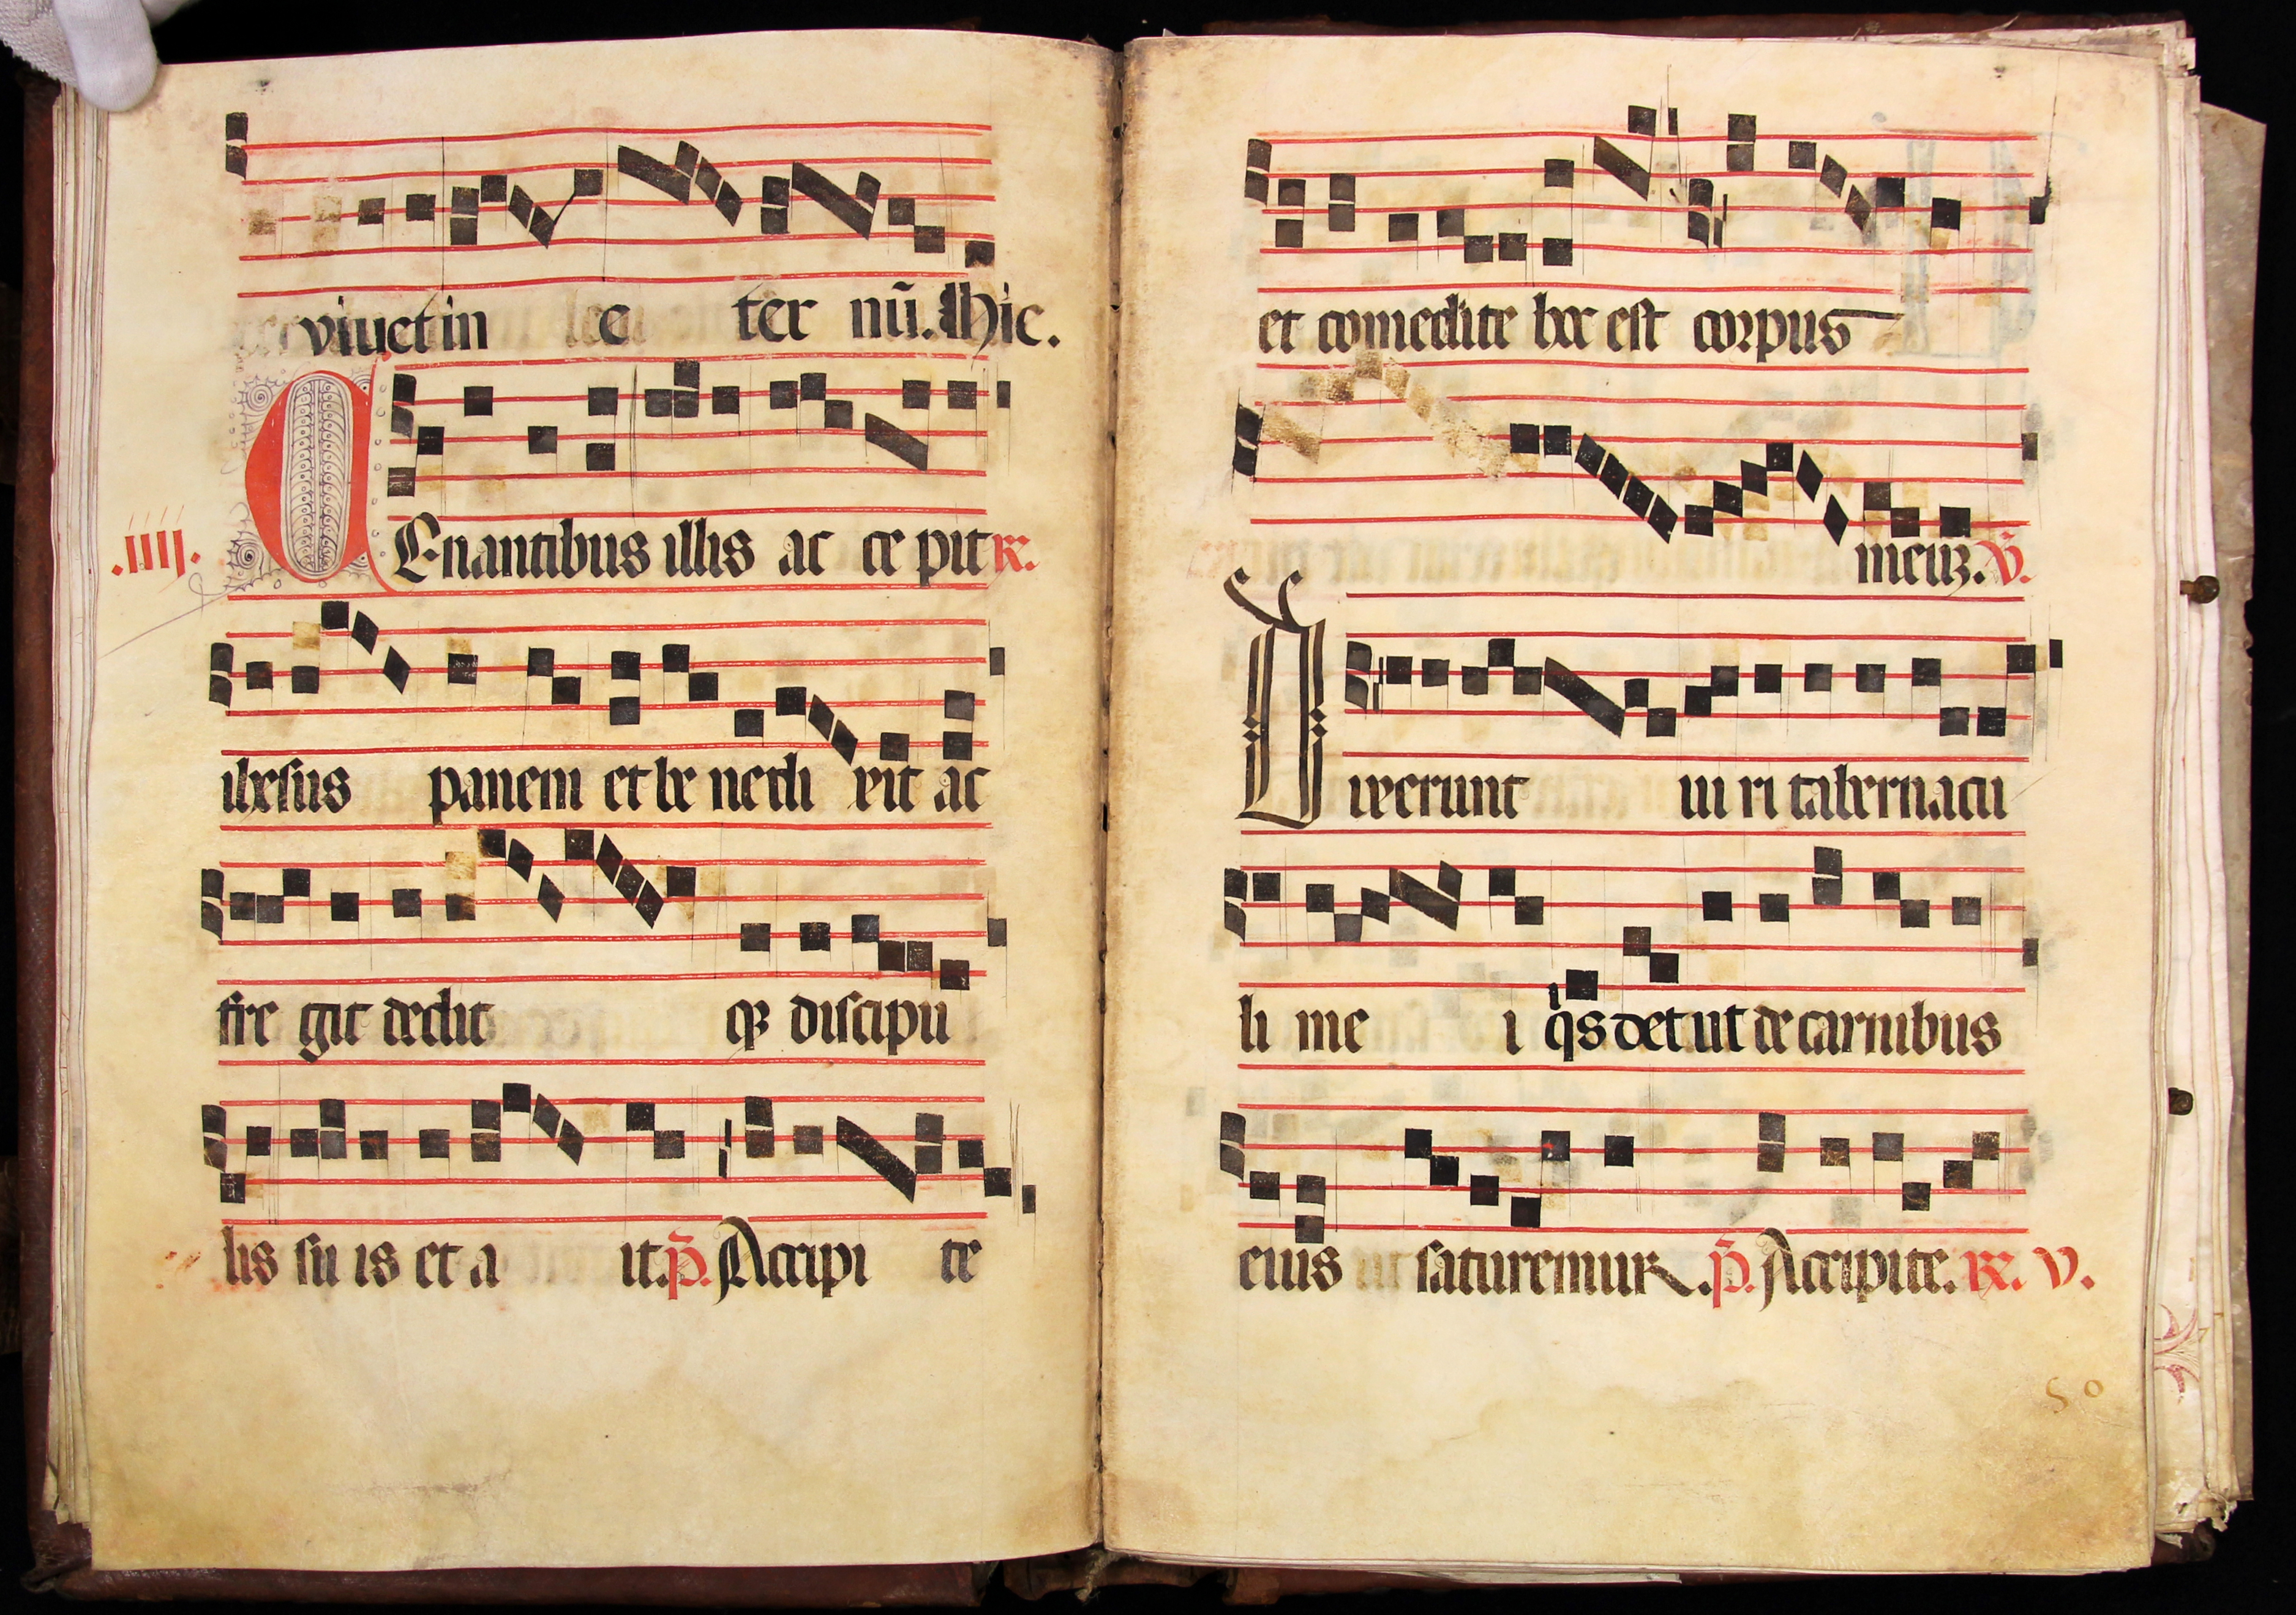 viuet in e ter nū. Hic.
.IIII. CEnantibus illis ac ce pit R.
ihesus panem et be nedi xit ac
fre git dedit qȝ discipu
lis su is et a it. p̄. Accipi te
et comedite hoc est corpus
meuz. v̄.
Dixerunt ui ri tabernacu
li me i qis det ut de carnibus
eius saturemur. p̄. Accipite. R. v.
50